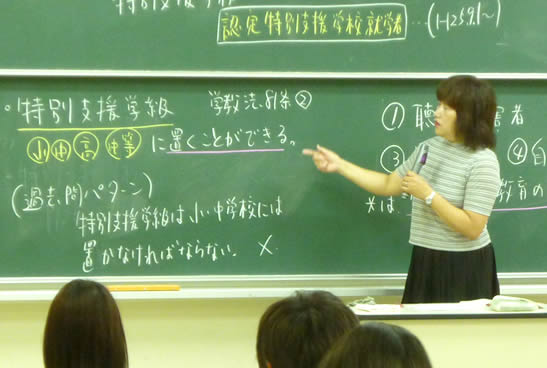 特別支援学
認定特別支援学校就学者 …(1-1259人~)
・特別支援学級 学教法81条②
小 中 高 中等 に置くことができる。
(過去問パターン)
特別支援学級は小・中学校には
置かなければならない. ×
① 聴 害者
③ ④ 自
教育の
※は